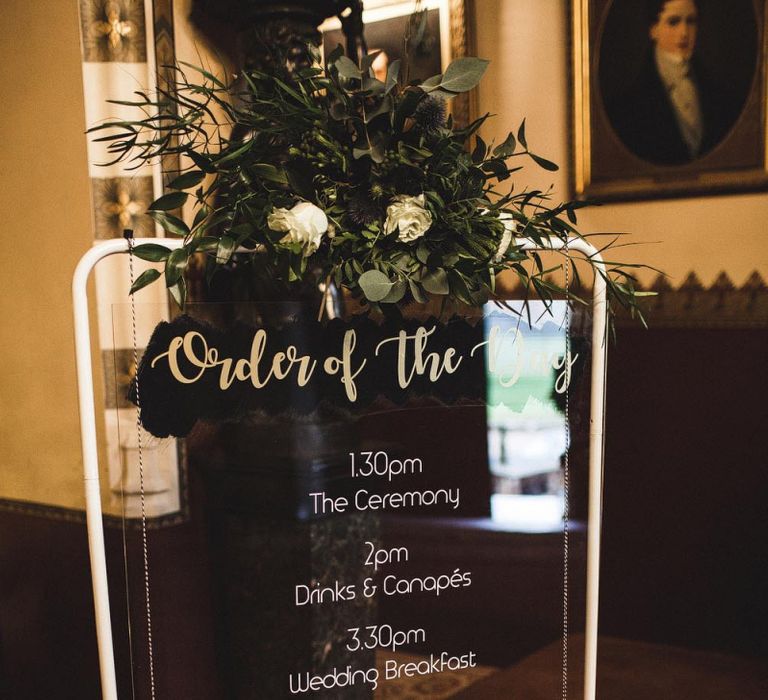 Order of the Day
1.30pm
The Ceremony
2pm
Drinks & Canapés
3.30pm
Wedding Breakfast